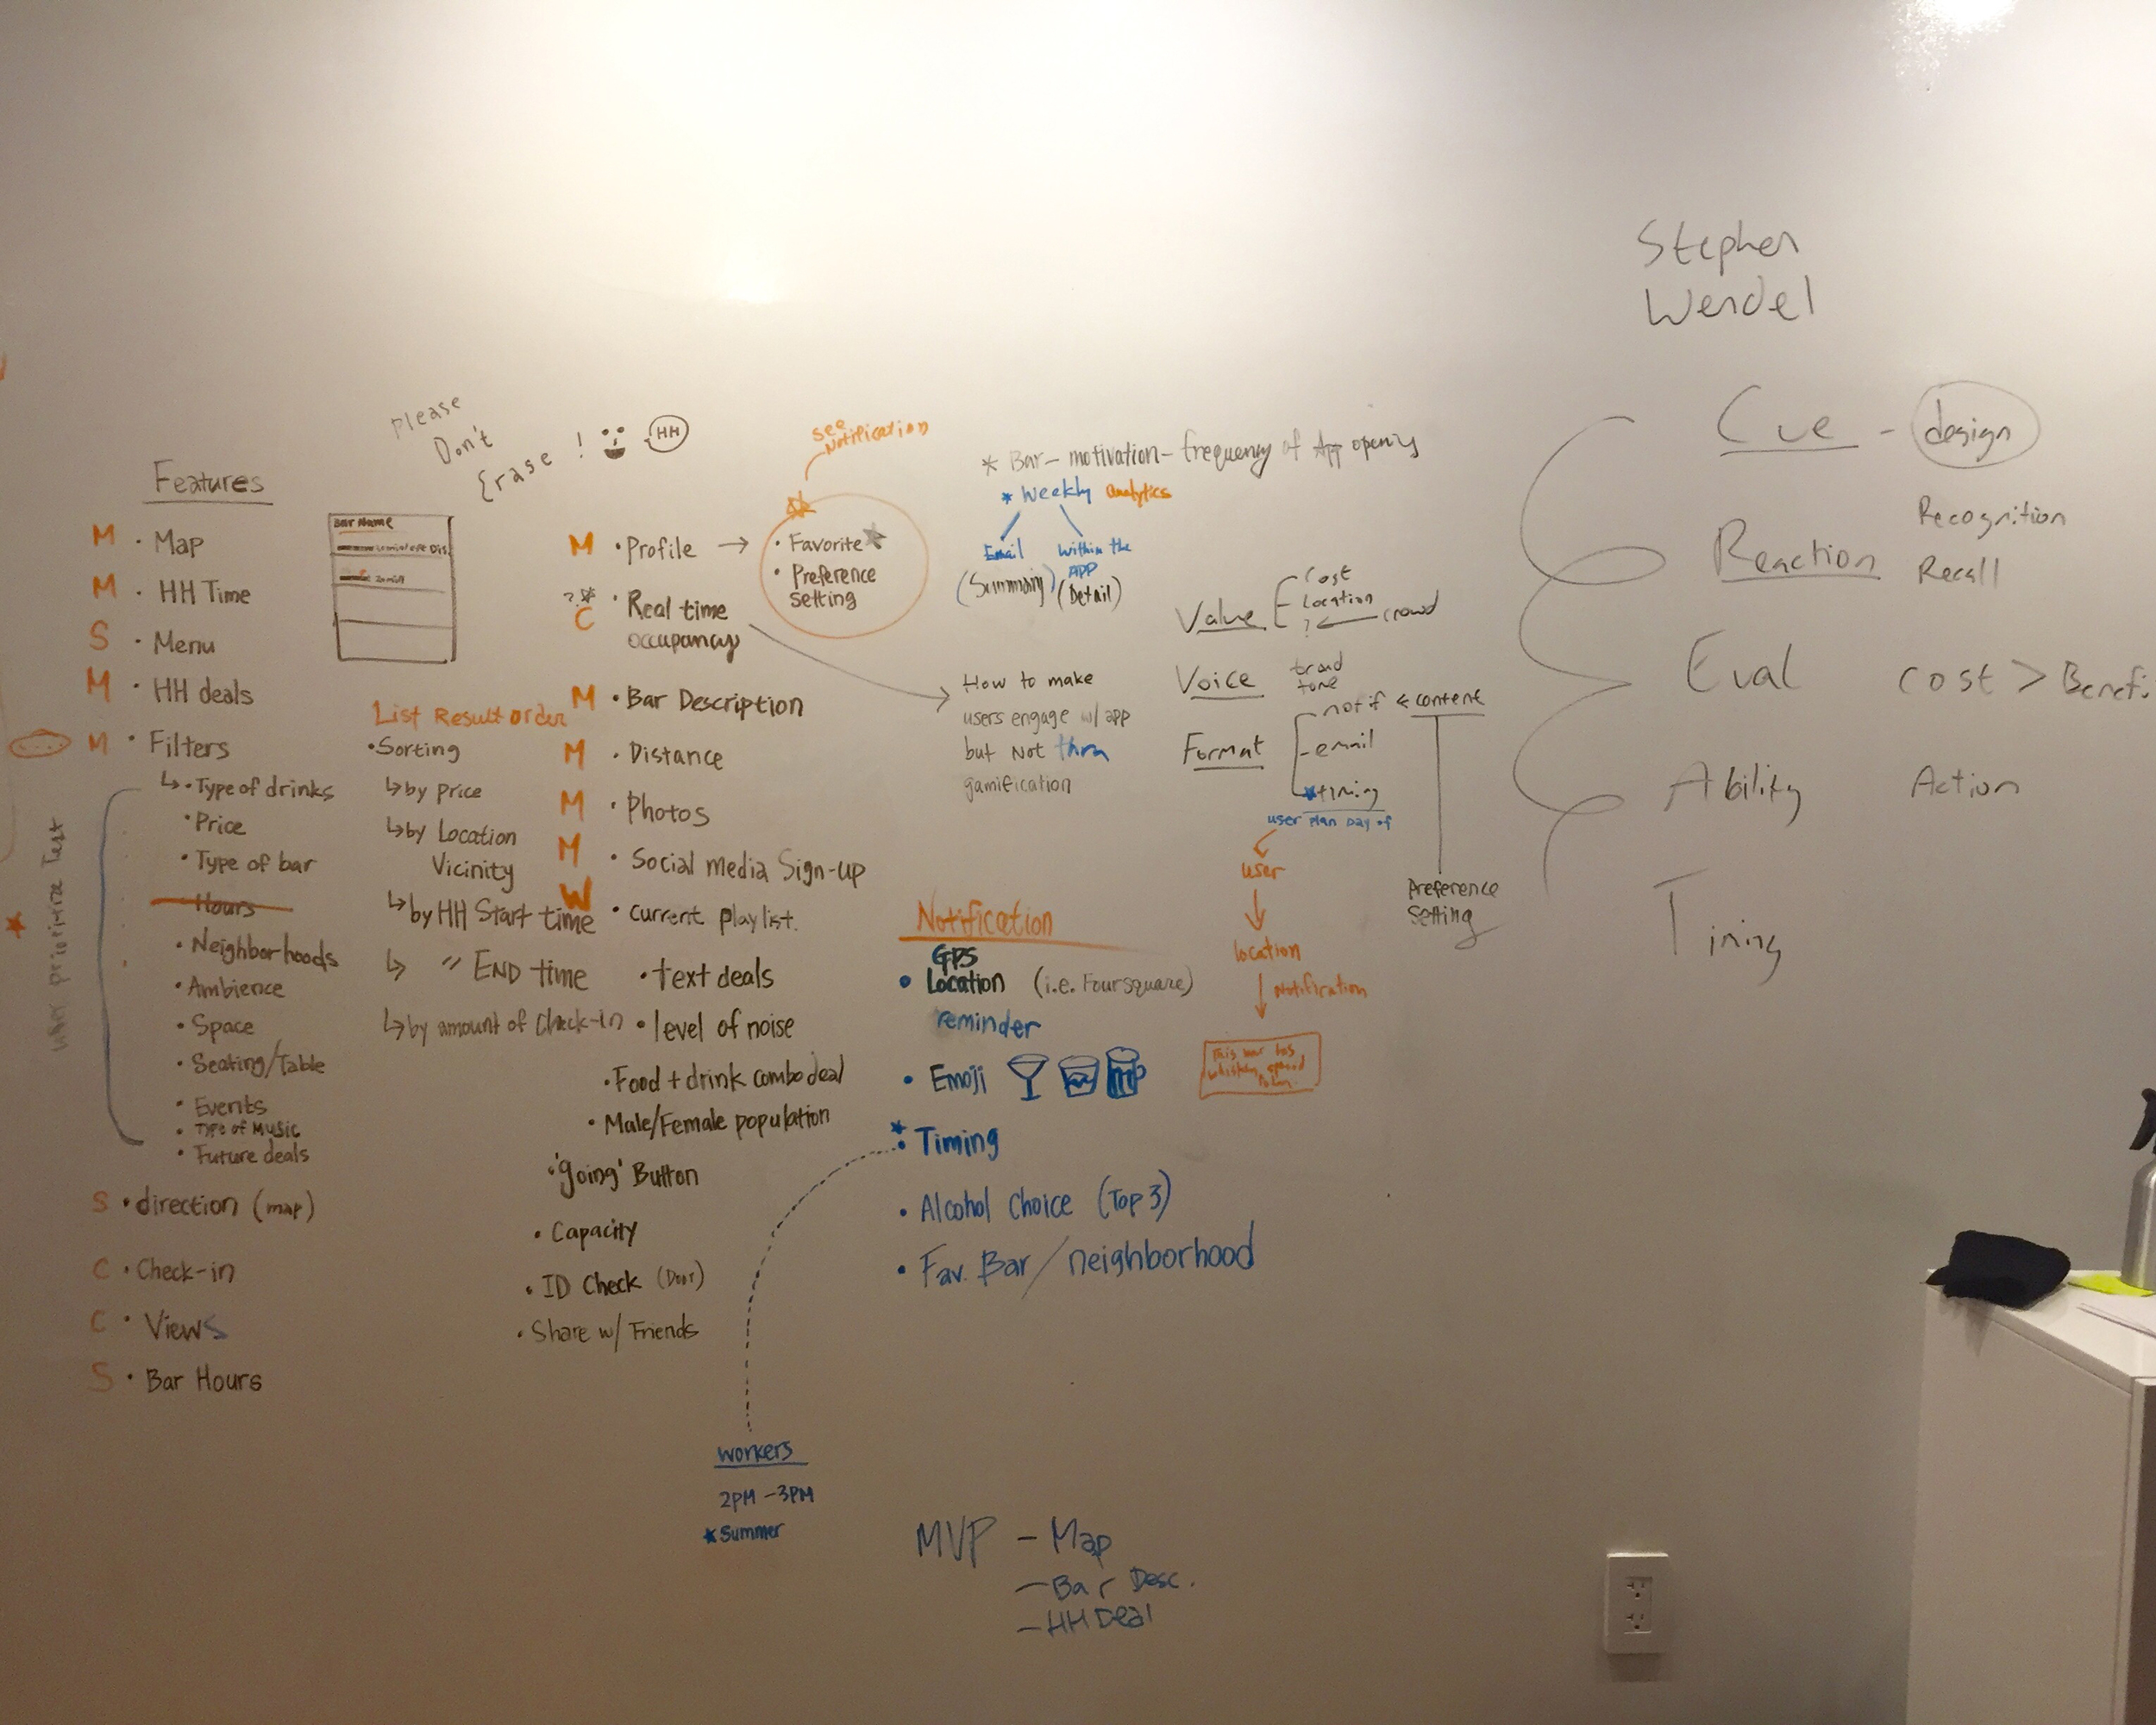 Stephen
Wendel
Please
Don't
Erase !
HH
Features
M · Map
M · HH Time
S · Menu
M · HH deals
M · Filters
↳ · Type of drinks
· Price
· Type of bar
Hours
· Neighborhoods
· Ambience
· Space
· Seating/Table
· Events
· Type of Music
· Future deals
prioritize Test
S · direction (map)
C · Check-in
C · Views
S · Bar Hours
Bar Name
List Result order
· Sorting
↳ by price
↳ by Location
Vicinity
↳ by HH Start time
↳ " END time
↳ by amount of Check-in
M · Profile →
? * C · Real time
occupancy
M · Bar Description
M · Distance
M · Photos
M · Social media Sign-up
W · current playlist.
· text deals
· level of noise
· Food + drink combo deal
· Male/Female population
· 'going' Button
· Capacity
· ID Check (Door)
· Share w/ Friends
see
Notification
· Favorite
· Preference
setting
* Bar - motivation - frequency of App opening
* Weekly analytics
Email
(Summary)
Within the
APP
(Detail)
How to make
users engage w/ app
but Not thru
gamification
Value
Cost
Location
? ← crowd
Voice
tone
Format
notif ← content
- email
* timing
user plan Day of
user
↓
location
↓ Notification
This bar has
Preference
Setting
Notification
GPS
· Location (i.e. Foursquare)
reminder
· Emoji
* · Timing
· Alcohol Choice (Top 3)
· Fav. Bar / neighborhood
workers
2PM - 3PM
* Summer
MVP - Map
- Bar Desc.
- HH Deal
Cue - design
Reaction
Recognition
Recall
Eval Cost > Benefi
Ability Action
Timing